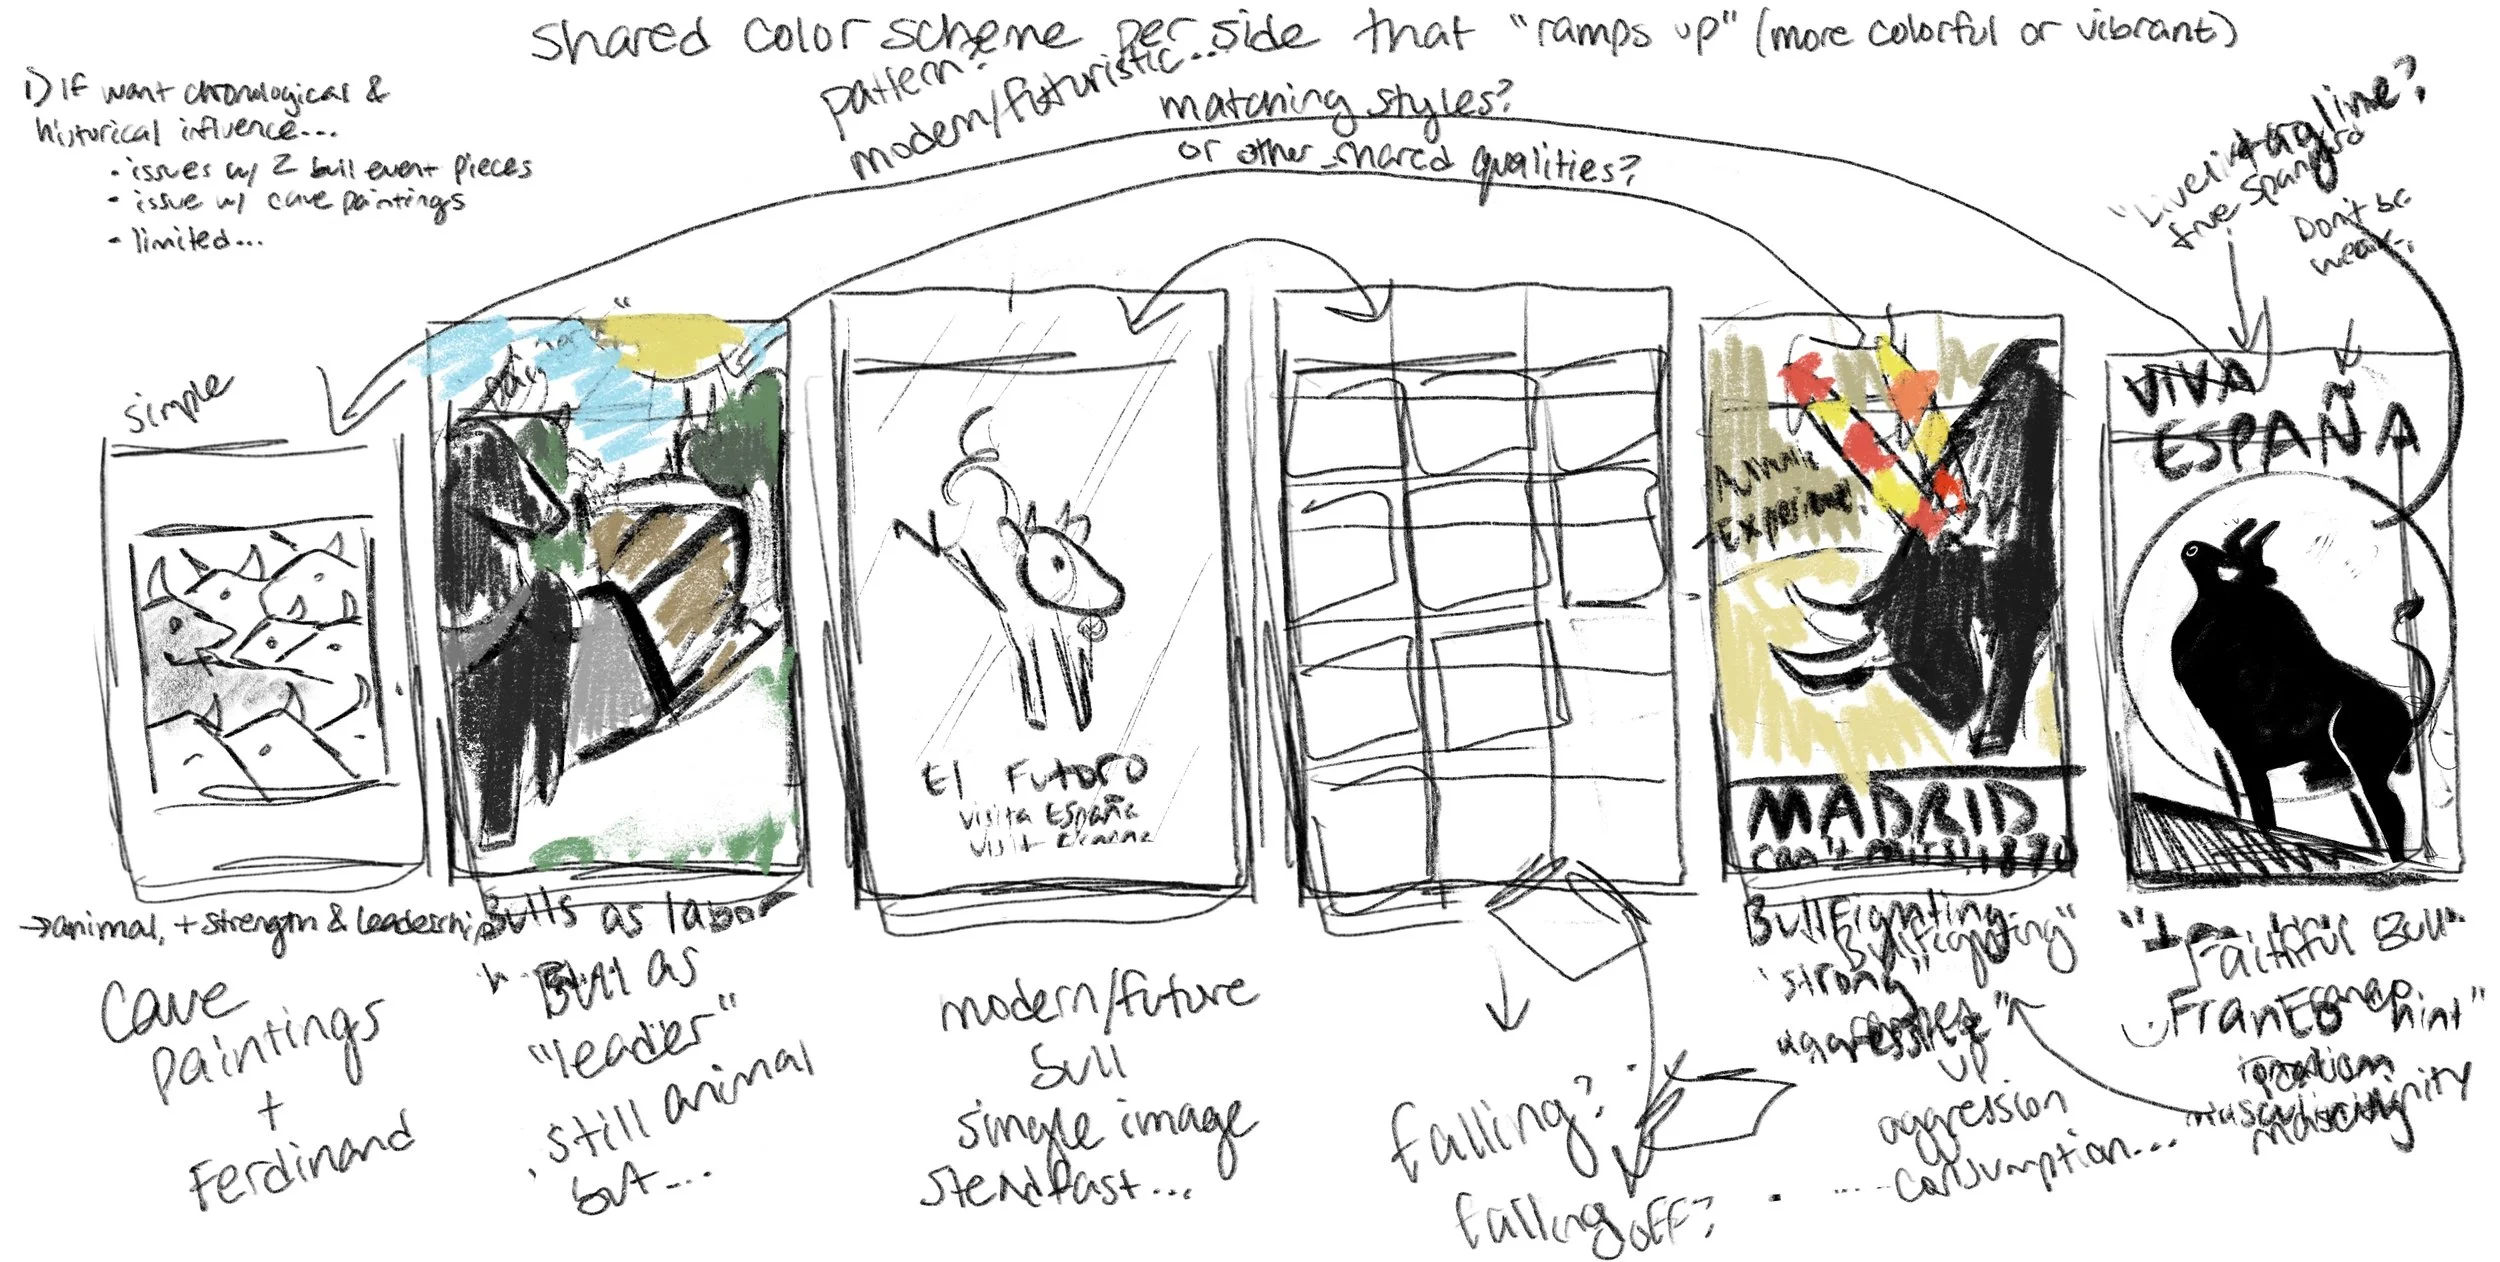 shared color scheme per side that "ramps up" (more colorful or vibrant)
pattern?
modern/futuristic...
matching styles?
or other shared qualities?
1) If want chronological &
historical influence...
• issues w/ 2 bull event pieces
• issue w/ cave paintings
• limited...
tagline?
Spaniard
Don't be
weak
simple
El Futoro
Visita España
Visit
Experience
MADRID
can't miss
VIVA
ESPAÑA
→animal, + strength & leadership
Cave
Paintings
+
Ferdinand
Bulls as labor
Bull as
"leader"
still animal
but...
modern/future
bull
single image
steadfast...
falling?
falling off?
Bullfighting
Bullfighting"
"strong"
aggressive"
up
aggression
consumption...
Faithful Bull"
hint"
masculinity